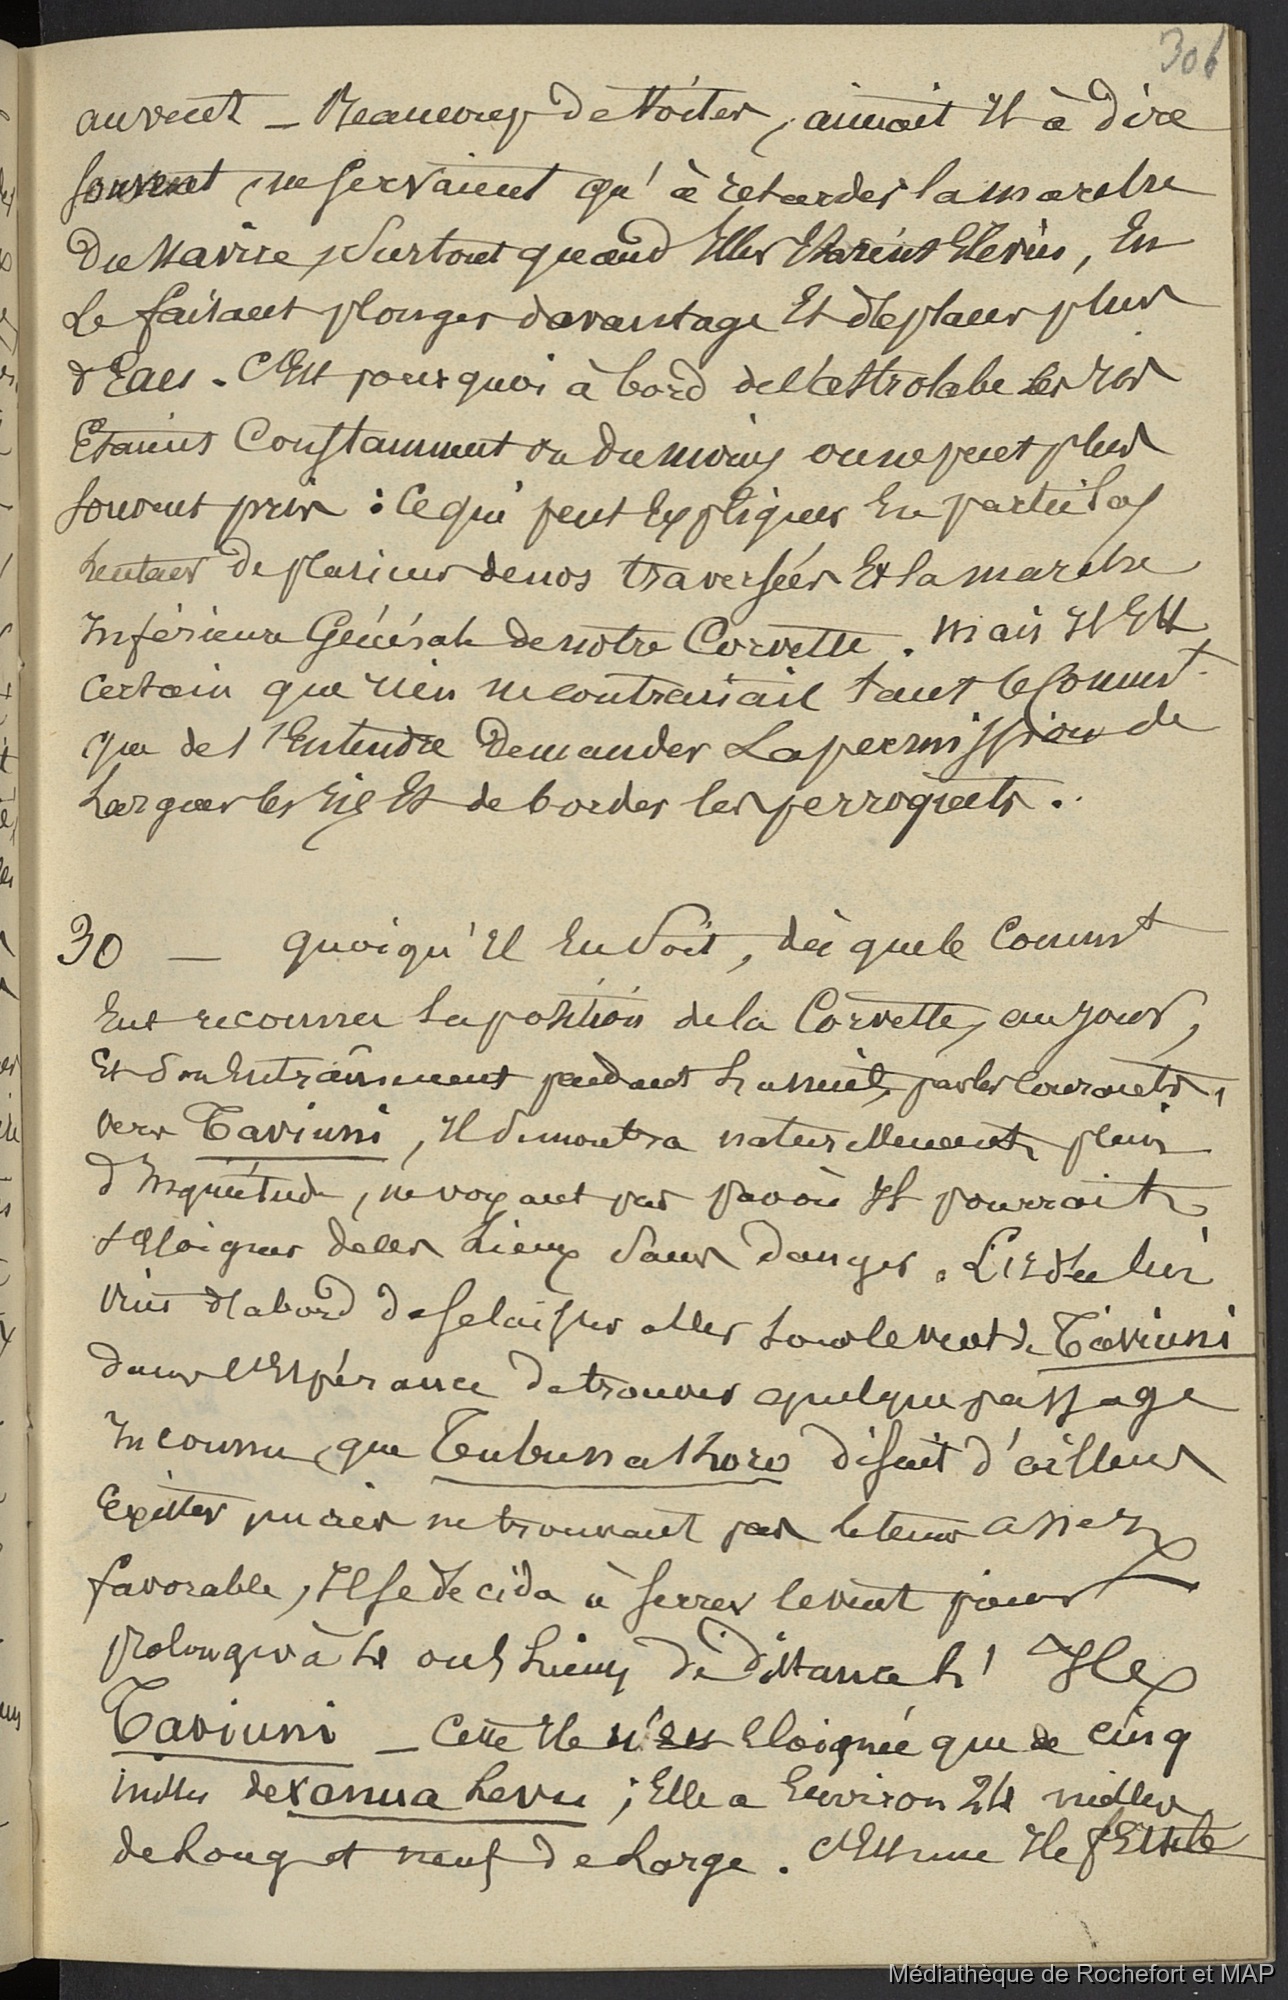 306
au vent _ Beaucoup de Voiles, aimait Il à dire
souvent, ne servaient qu' à retarder la marche
du Navire, Surtout quand Elles Etaient Elevées, En
le faisant plonger davantage Et deplacer plus
d'Eau. C'Est pourquoi à bord de l'astrolabe les ris
Etaient Constamment ou du moins on ne peut plus
souvent pris : ce qui peut Expliquer En partie la
lenteur de plusieurs de nos traversées Et la marche
Inférieure Générale de notre Corvette. mais Il Est
certain que rien ne contrariait tant le Commt
que de l'Entendre demander la permission de
larguer les ris Et de border les perroquets.
30 _ quoiqu'Il En Soit, dès que le Commt
Eut reconnu la position de la Corvette, au jour,
Et Son Entraînement pendant la nuit, par les courants,
vers Taviuni, Il Se montra naturellement plein
d'Inquiétude, ne voyant pas par où Il pourrait
s'Eloigner de ces lieux Sans danger. L'Idée lui
vint d'abord de se laisser aller sous le vent de Taviuni
dans l'Espérance de trouver quelque passage
Inconnu, que Toubouna Thoro disait d'ailleurs
Exister puis ne trouvant pas le tems assez
favorable, Il se decida à serrer le vent pour
prolonger à 4 ou 5 lieues de distance l' Ile
Taviuni _ Cette Ile n'Est Eloignée que de cinq
milles de Vanua Levu ; Elle a Environ 24 milles
de long et neuf de large. C'Est une Ile fertile
Médiathèque de Rochefort et MAP